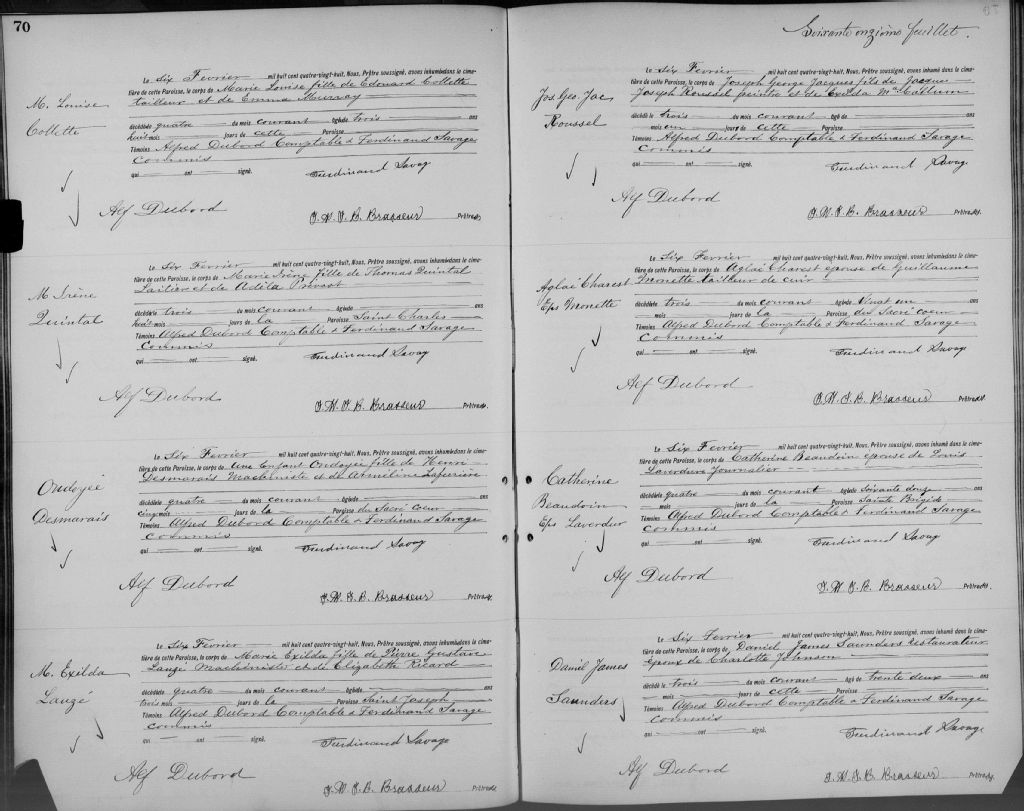 70
Le Six Fevrier mil huit cent quatre-vingt-huit, Nous, Prêtre soussigné, avons inhumé dans le cime-
tière de cette Paroisse, le corps de Marie Louise fille de Edouard Collette
tailleur et de Emma
M. Louise
Collette
décédée quatre du mois courant âgée de trois ans
huit mois jours de cette Paroisse
Témoins Alfred Dubord Comptable & Ferdinand Savage
Commis
qui ont signé. Ferdinand Savag
Alf Dubord
J. M. J. B. Brasseur Prêtre
Le Six Fevrier mil huit cent quatre-vingt-huit, Nous, Prêtre soussigné, avons inhumé dans le cime-
tière de cette Paroisse, le corps de Marie Irène fille de Thomas Quintal
Laitier et de Adila Prevost
M Irène
Quintal
décédée trois du mois courant âgée de ans
huit mois jours de la Paroisse Saint Charles
Témoins Alfred Dubord Comptable & Ferdinand Savage
Commis
qui ont signé. Ferdinand Savag
Alf Dubord
J. M. J. B. Brasseur Prêtre
Le Six Fevrier mil huit cent quatre-vingt-huit, Nous, Prêtre soussigné, avons inhumé dans le cime-
tière de cette Paroisse, le corps de Une Enfant Ondoyée fille de Henri
Desmarais Machiniste et de Laferrière
Ondoyée
Desmarais
décédée quatre du mois courant âgée de ans
cinq mois jours de la Paroisse du Sacré Cœur
Témoins Alfred Dubord Comptable & Ferdinand Savage
Commis
qui ont signé. Ferdinand Savag
Alf Dubord
J. M. J. B. Brasseur Prêtre
Le Six Fevrier mil huit cent quatre-vingt-huit, Nous, Prêtre soussigné, avons inhumé dans le cime-
tière de cette Paroisse, le corps de Marie Exilda fille de Pierre Gustave
Laugé Machiniste et de Elizabette Ricard
M. Exilda
Laugé
décédée quatre du mois courant âgée de ans
trois mois jours de la Paroisse Saint Joseph
Témoins Alfred Dubord Comptable & Ferdinand Savage
Commis
qui ont signé. Ferdinand Savage
Alf Dubord
J. M. J. B. Brasseur Prêtre
Soixante onzième feuillet.
Le Six Fevrier mil huit cent quatre-vingt-huit, Nous, Prêtre soussigné, avons inhumé dans le cime-
tière de cette Paroisse, le corps de Joseph George Jacques fils de Jacques
Joseph Roussel peintre et de Exilda McCallum
Jos Geo Jac
Roussel
décédé le trois du mois courant âgé de ans
mois un jours de cette Paroisse
Témoins Alfred Dubord Comptable & Ferdinand Savage
Commis
qui ont signé. Ferdinand Savag
Alf Dubord
J. M. J. B. Brasseur Prêtre
Le Six Fevrier mil huit cent quatre-vingt-huit, Nous, Prêtre soussigné, avons inhumé dans le cime-
tière de cette Paroisse, le corps de Aglaé Charest epouse de Guillaume
Monette tailleur de cuir
Aglaé Charest
Eps Monette
décédée trois du mois courant âgée de Vingt un ans
mois jours de la Paroisse du Sacré coeur
Témoins Alfred Dubord Comptable & Ferdinand Savage
Commis
qui ont signé. Ferdinand Savag
Alf Dubord
J. M. J. B. Brasseur Prêtre
Le Six Fevrier mil huit cent quatre-vingt-huit, Nous, Prêtre soussigné, avons inhumé dans le cime-
tière de cette Paroisse, le corps de Catherine Beaudoin epouse de Louis
Laverdure Journalier
Catherine
Beaudoin
Eps Laverdur
décédée quatre du mois courant âgée de Soixante douze ans
mois jours de la Paroisse Sainte Brigide
Témoins Alfred Dubord Comptable & Ferdinand Savage
Commis
qui ont signé. Ferdinand Savag
Alf Dubord
J. M. J. B. Brasseur Prêtre
Le Six Fevrier mil huit cent quatre-vingt-huit, Nous, Prêtre soussigné, avons inhumé dans le cime-
tière de cette Paroisse, le corps de Daniel James Saunders Restaurateur
Epoux de Charlotte Johnson
Daniel James
Saunders
décédé le trois du mois courant âgé de trente deux ans
mois jours de cette Paroisse
Témoins Alfred Dubord Comptable & Ferdinand Savage
Commis
qui ont signé. Ferdinand Savage
Alf Dubord
J. M. J. B. Brasseur Prêtre